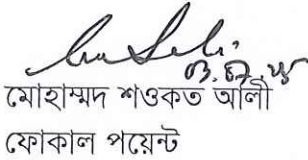 মোহাম্মদ শওকত আলী
ফোকাল পয়েন্ট